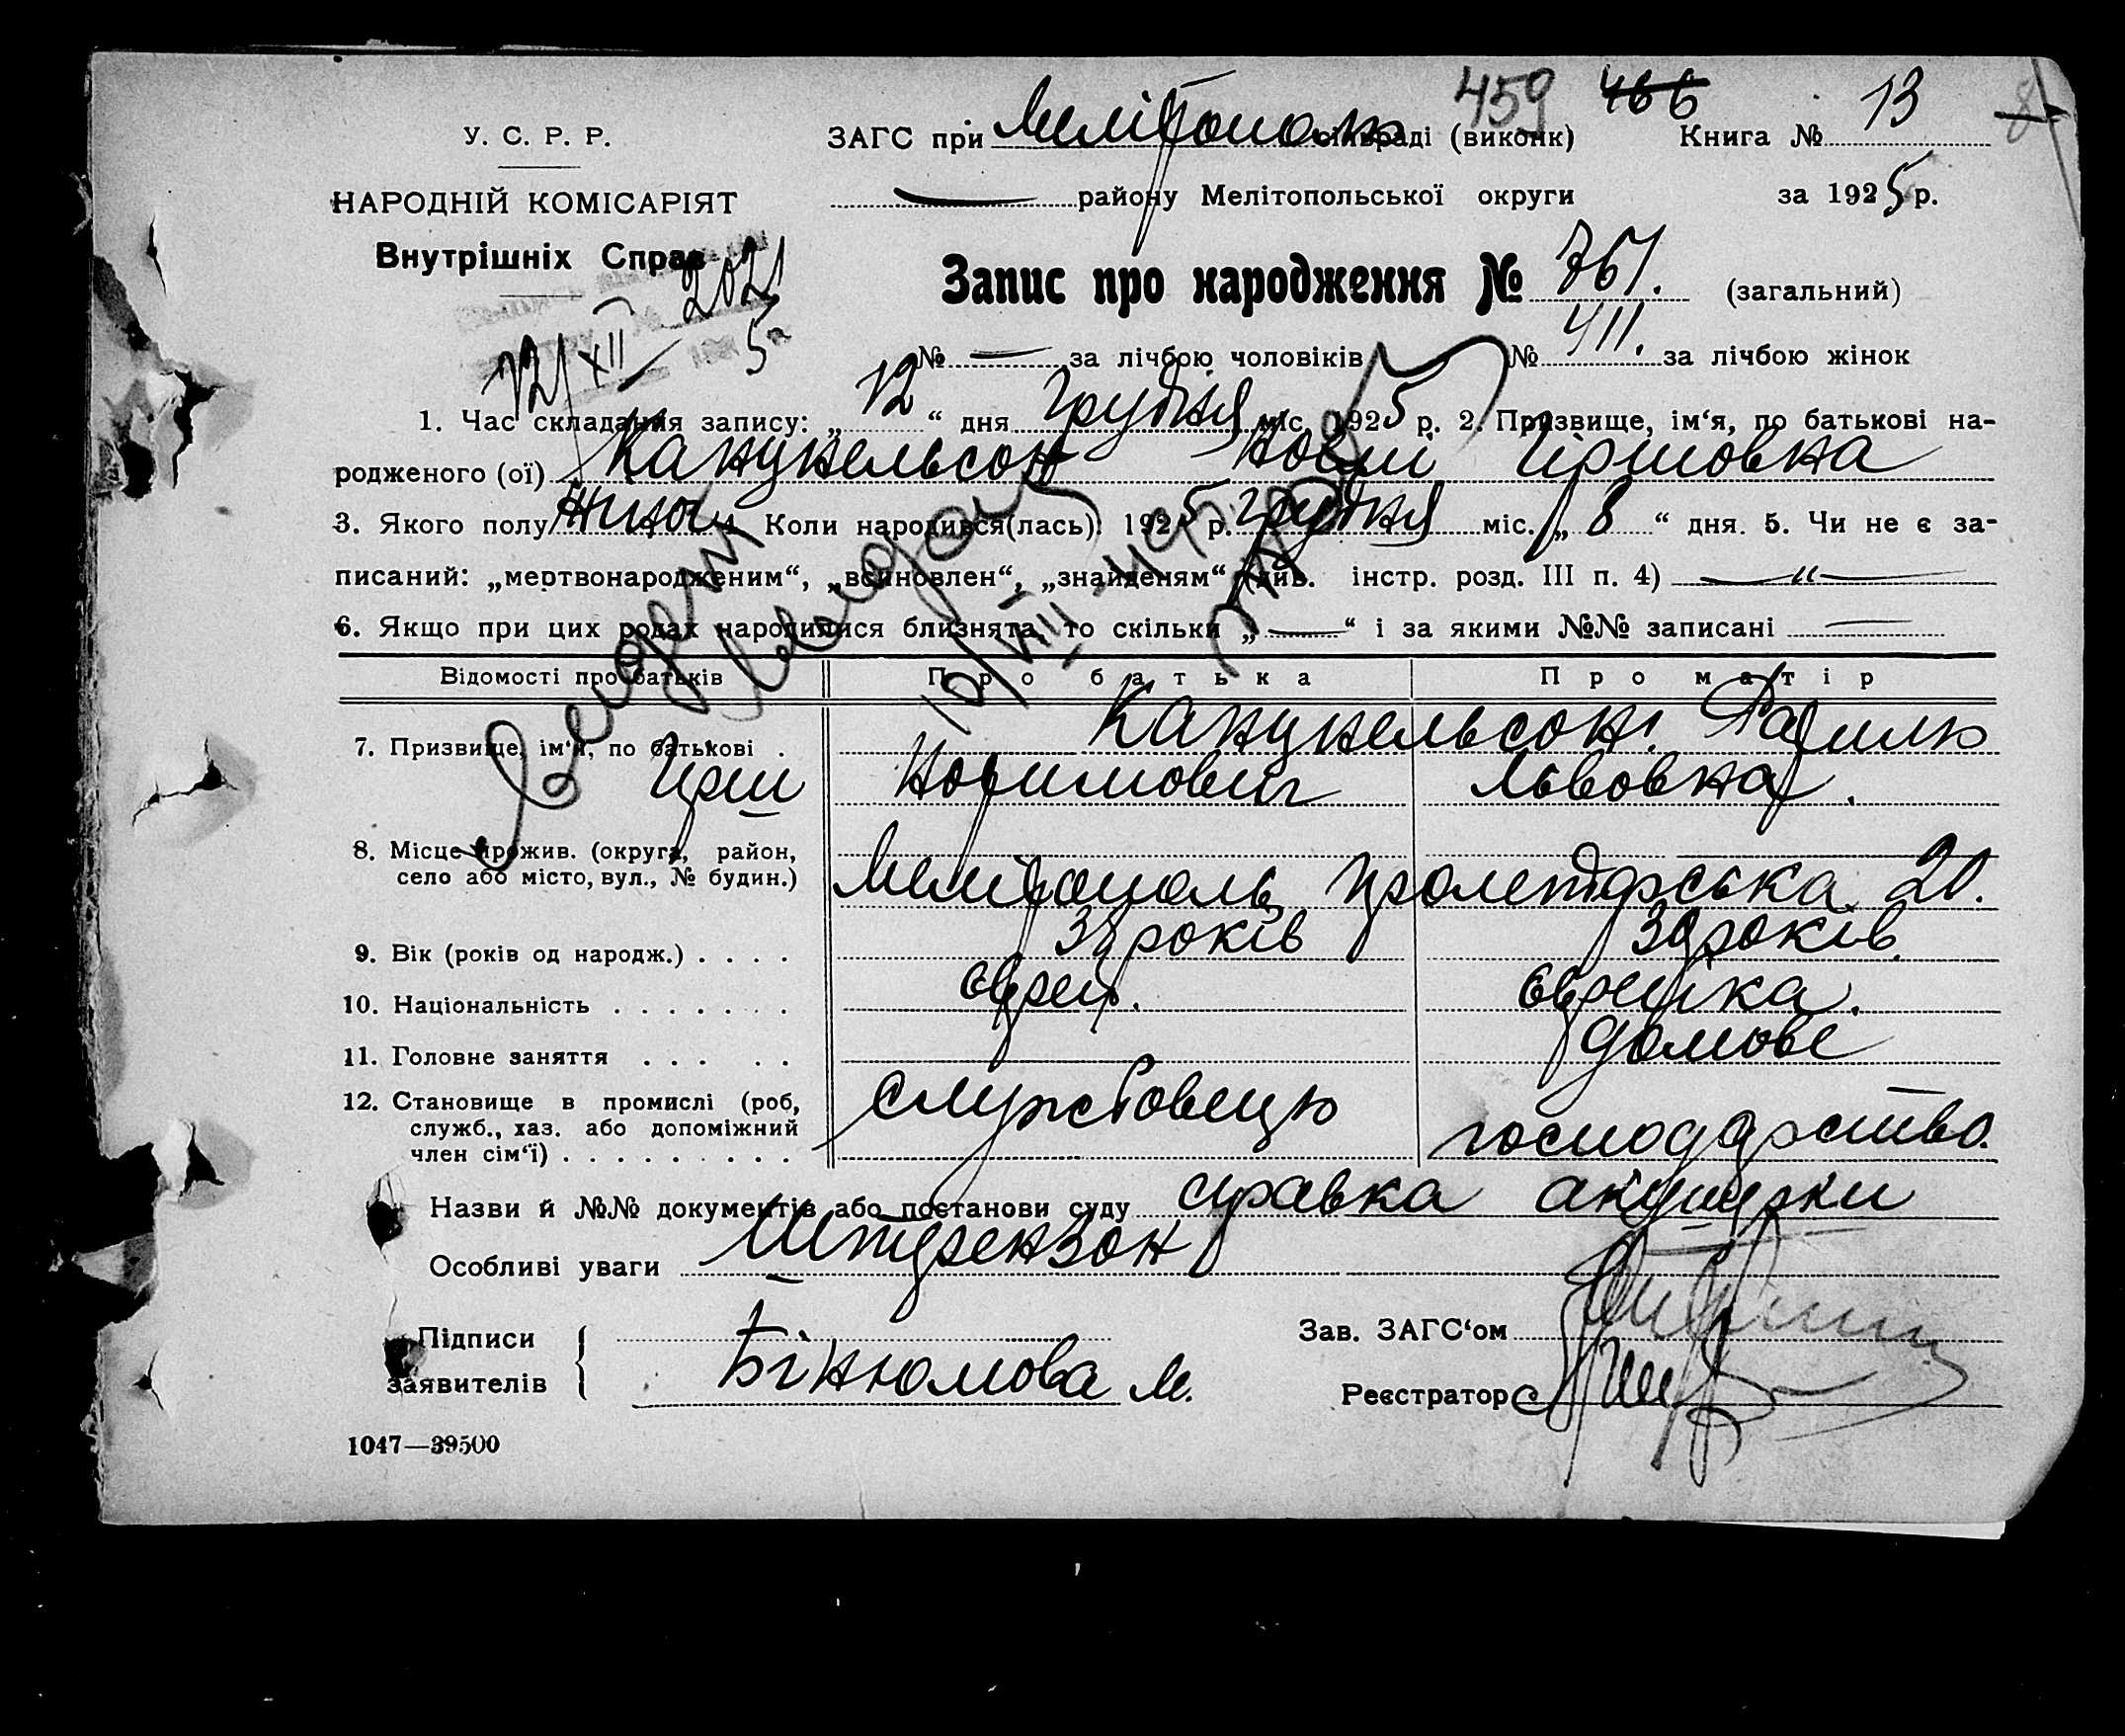 459 466
У. С. Р. Р. ЗАГС при Мелітополь сільраді (виконк) Книга № 13
НАРОДНІЙ КОМІСАРІЯТ району Мелітопольської округи за 1925 р.
Внутрішніх Справ
2021
12/XII 5
Запис про народження № 761. (загальний)
№ — за лічбою чоловіків № 411. за лічбою жінок
1. Час складання запису: „12“ дня Грудня міс. 1925 р. 2. Призвище, ім‘я, по батькові на-
родженого (ої) Канцнельсон Гіршовна
3. Якого полу жіноч 4. Коли народився(лась): 1925 р. Грудня міс. „8“ дня. 5. Чи не є за-
писаний: „мертвонародженим“, „всиновлен“, „знайденям“ (див. інстр. розд. III п. 4) —„—
6. Якщо при цих родах народилися близнята, то скільки „—“ і за якими №№ записані —
Відомості про батьків Про батька Про матір
7. Призвище, ім‘я, по батькові . Канцнельсон. Рахиль
Гірш Львовна.
8. Місце прожив. (округа, район,
село або місто, вул., № будин.) Мелітополь Пролетарська 20.
9. Вік (років од народж.) . . . . 38 років 30 років.
10. Національність . . . . . . . єврей. єврейка.
11. Головне заняття . . . . . домове
12. Становище в промислі (роб,
служб., хаз. або допоміжний
член сім‘ї) . . . . . . . . . службовець господарство.
Назви й №№ документів або постанови суду справка акушерки
Особливі уваги Штерензон
Підписи
заявителів Бінюмова М.
Зав. ЗАГС‘ом
Реєстратор
1047—39500